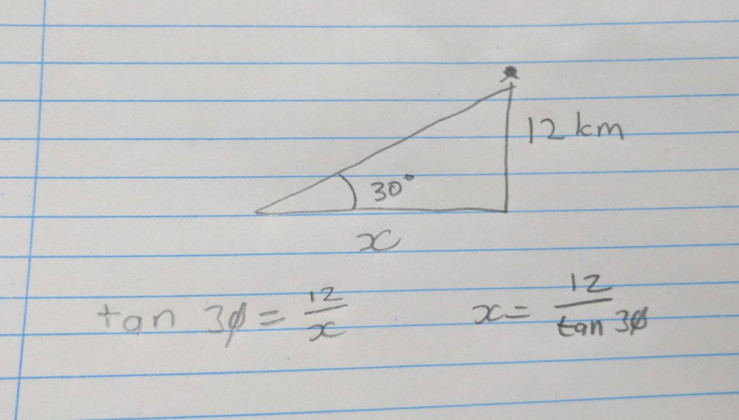 12 km
30°
x
tan 3φ = 12/x
x = 12/tan 3φ